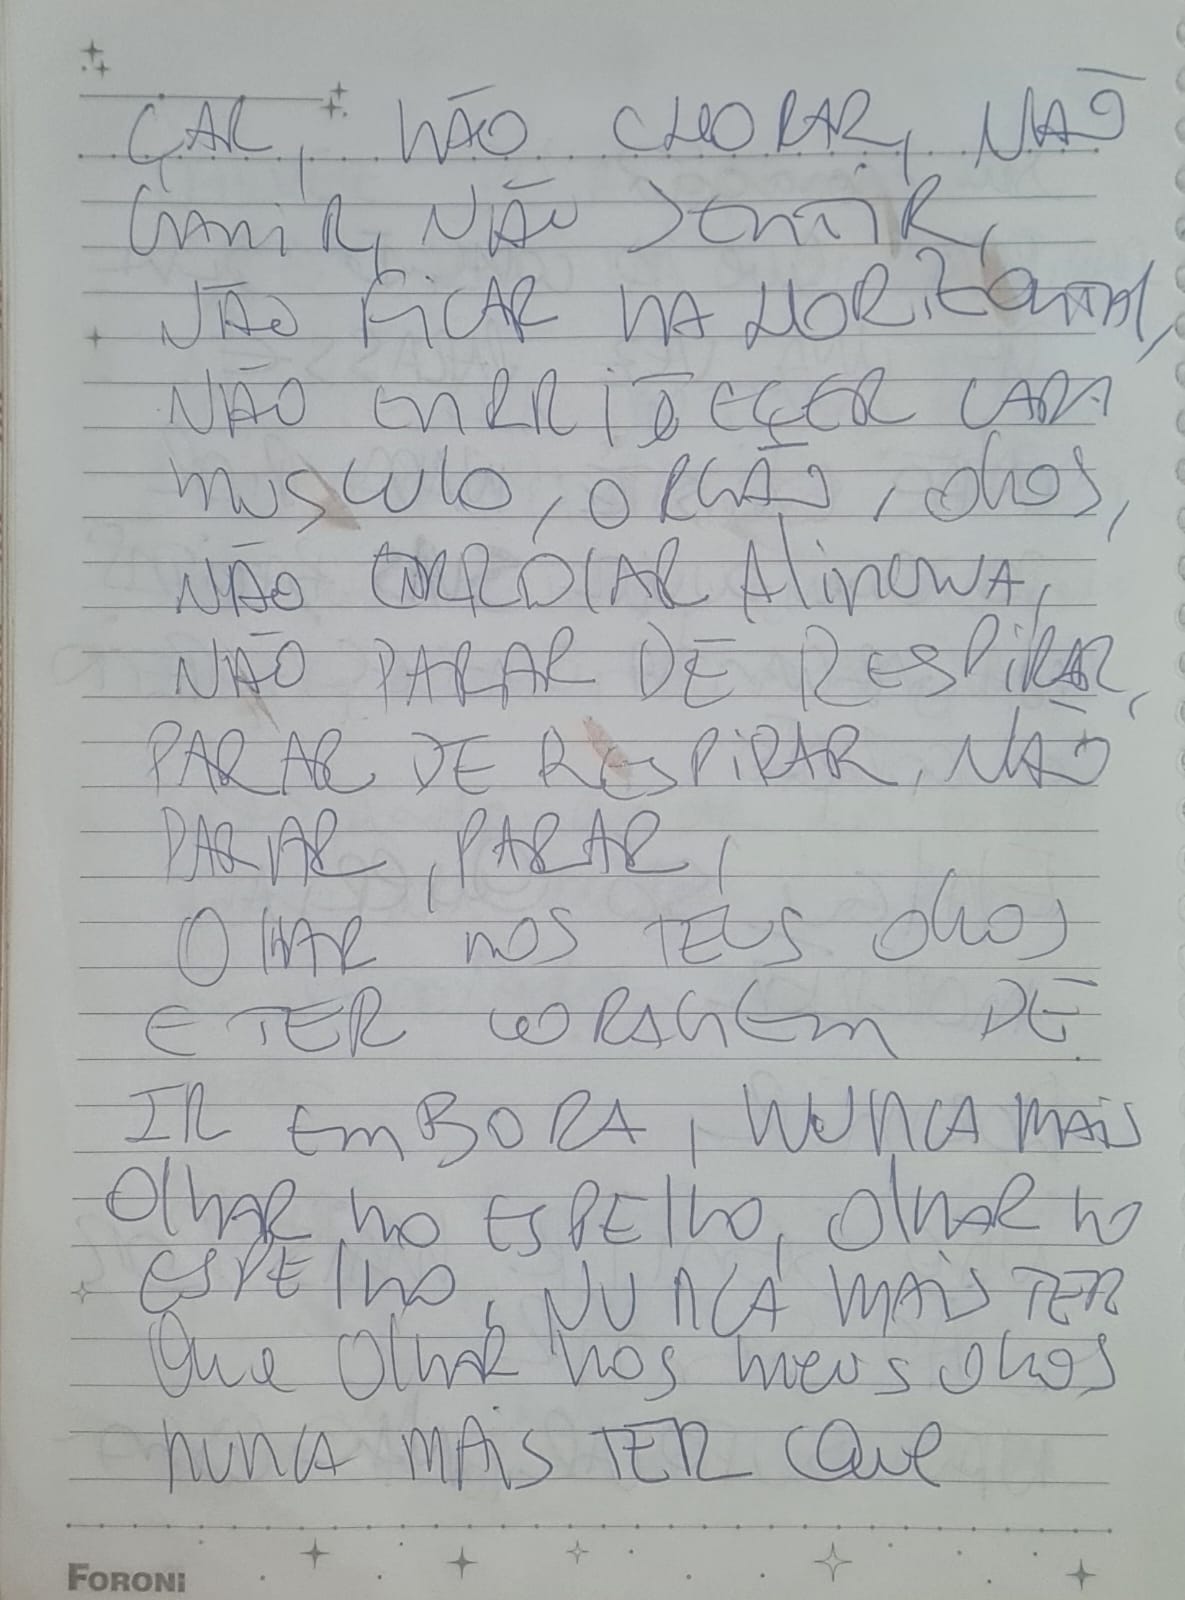 ÇAR, NÃO CHORAR, NÃO
GANIR, NÃO SENTIR,
NÃO FICAR NA HORIZONTAL,
NÃO ENRRIJEÇER CADA
MUSCULO, ORGÃO, OLHOS,
NÃO ENRROLAR A lingua,
NÃO PARAR DE RESPIRAR,
PARAR DE RESPIRAR, NÃO
PARAR, PARAR,
OLHAR NOS TEUS OLHOS
E TER CORAGEM DE
IR EMBORA, NUNCA MAIS
OlhAR NO ESPElhO, OlhAR NO
ESPElhO, NUNCA MAIS TER
Que OlhAR NOS meus olhos
NUNCA MAIS TER Que
FORONI